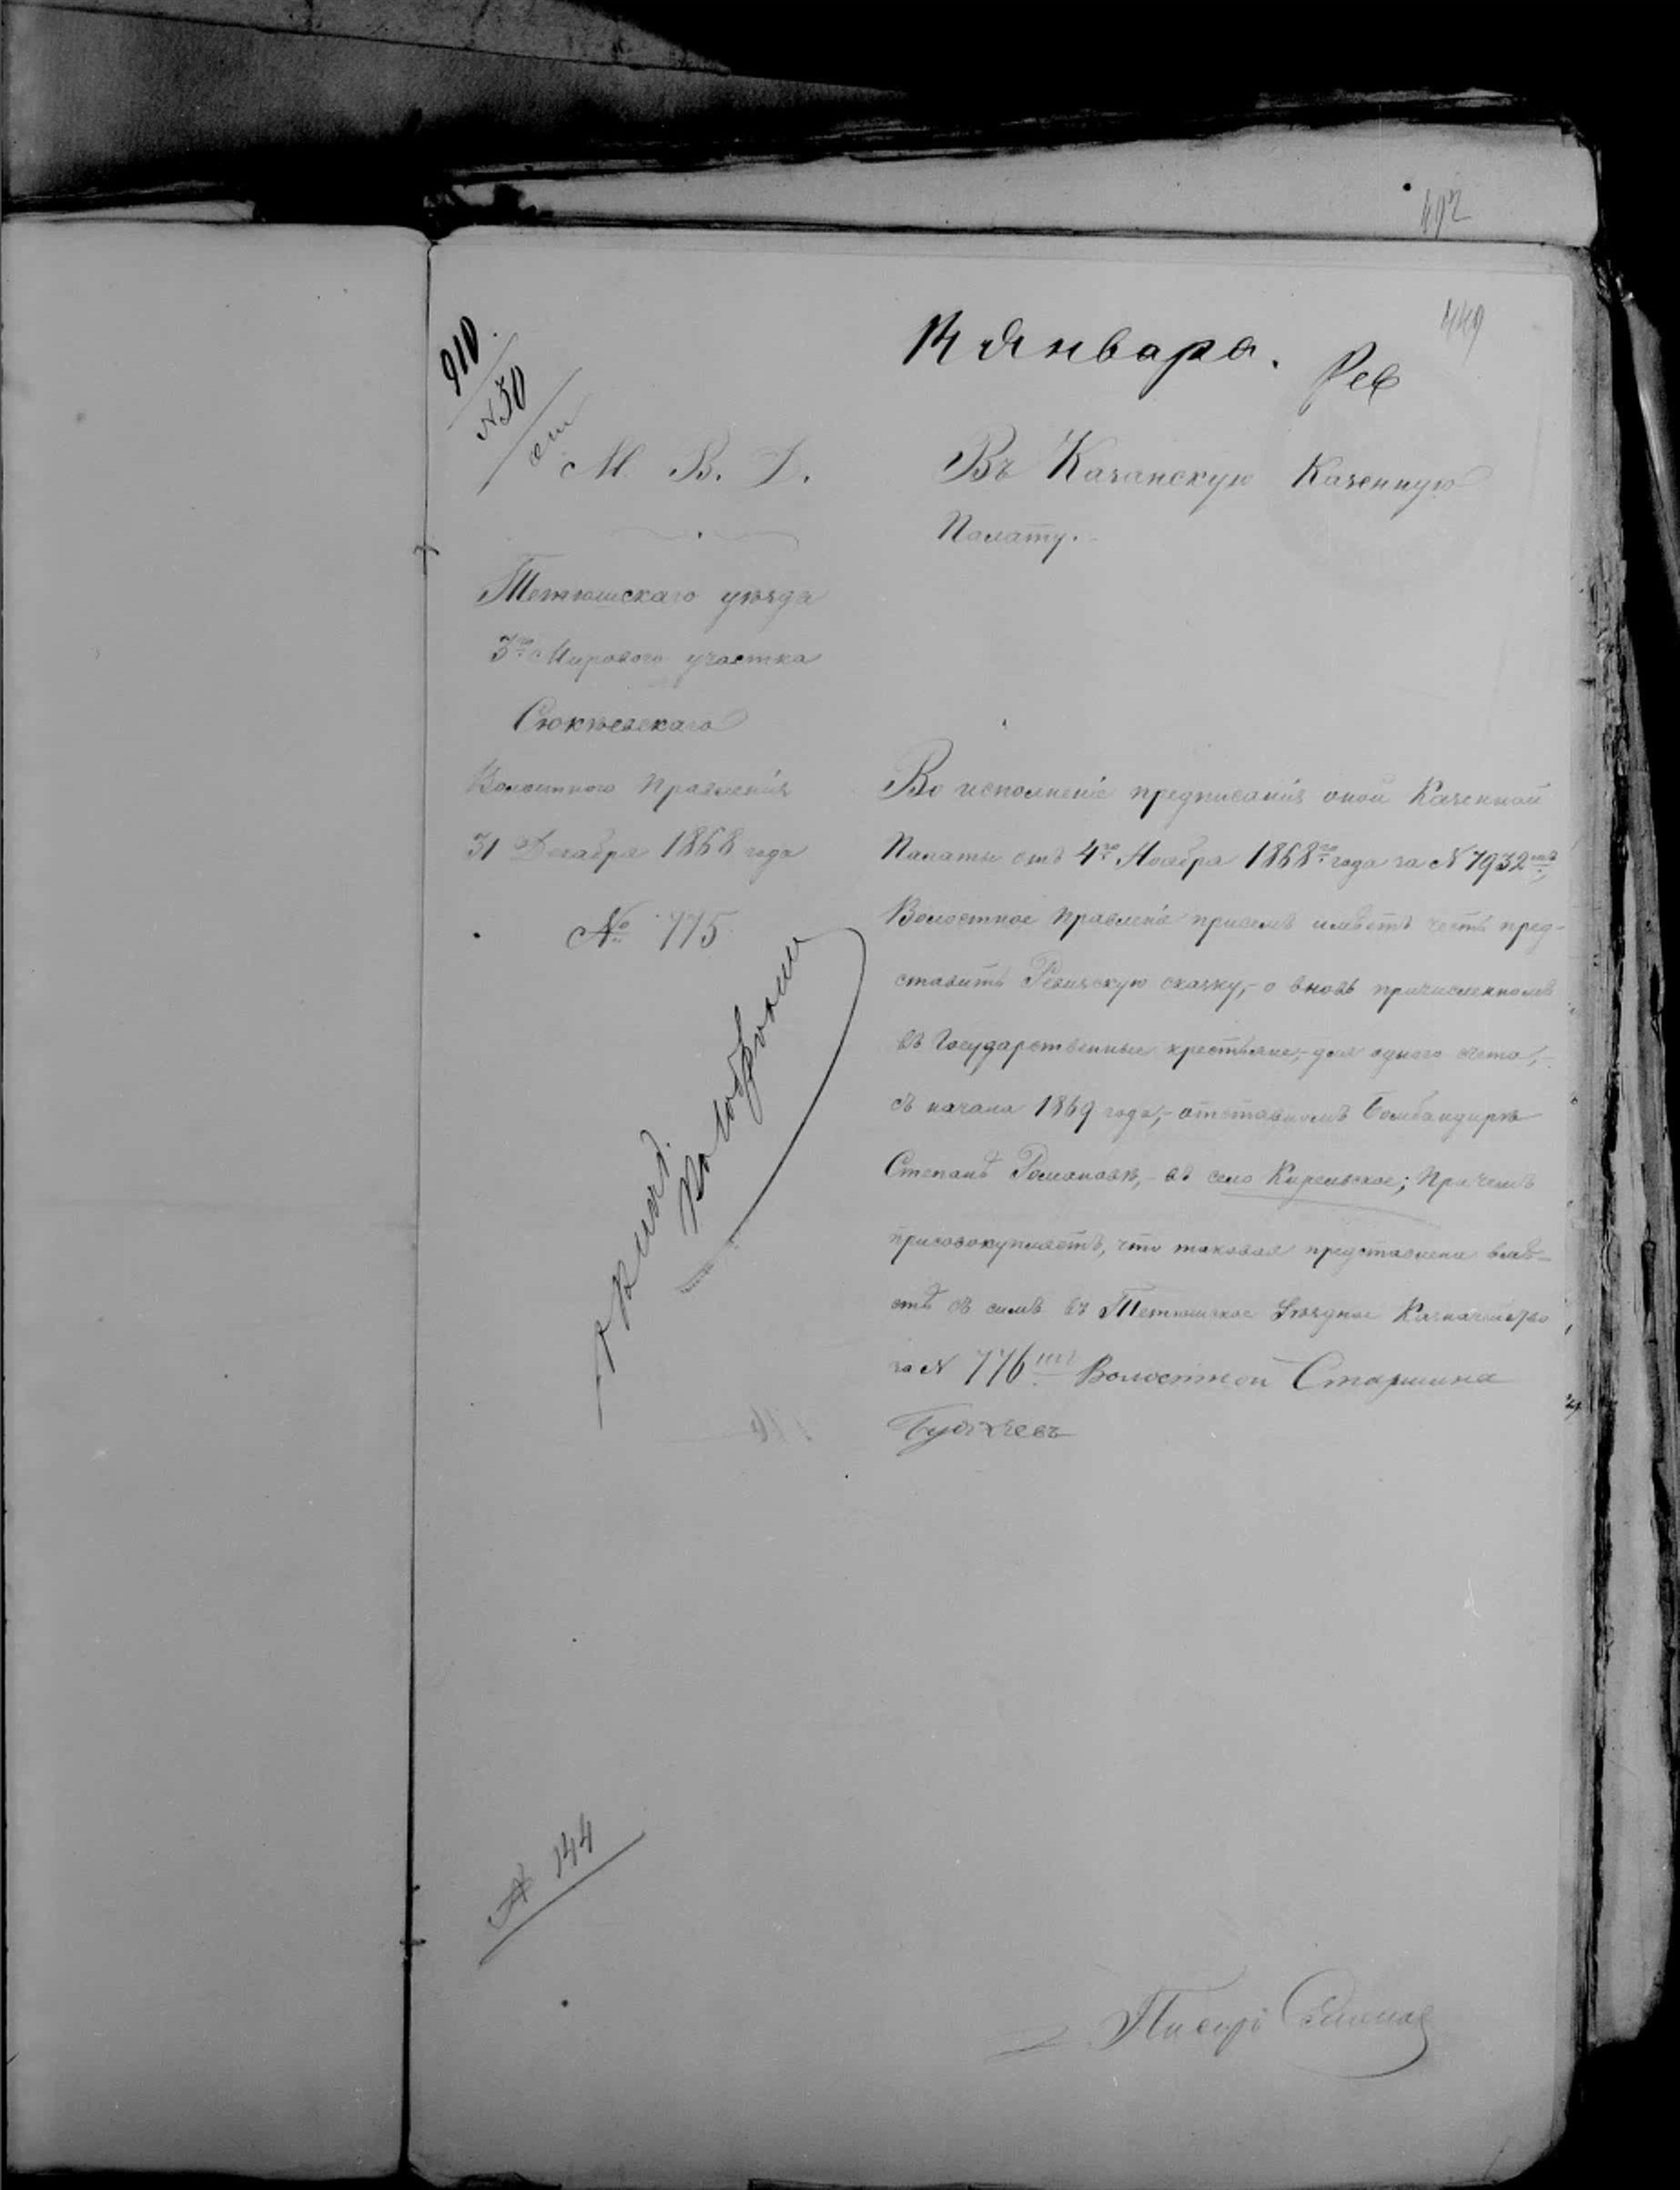 492
449
14 Января.
Рев
910
№ 30
М. В. Д.
Тетюшскаго уѣзда
3го Мироваго участка
Сюкѣевскаго
Волостнаго Правленія
31 Декабря 1868 года
№ 775
Въ Казанскую Казенную
Палату.
Во исполненіе предписанія оной Казенной
Палаты отъ 4го Ноября 1868го года за № 7932мъ,
Волостное Правленіе присемъ имѣетъ честь пред-
ставить Ревизскую сказку,- о вновь причисленномъ
въ Государственные крестьяне,- для одного счета,-
съ начала 1869 года,- отставномъ Бомбандирѣ
Степанѣ Романовѣ,- въ село Кирельское; Причемъ
присовокупляетъ, что таковая представлена вмѣ-
стѣ съ симъ въ Тетюшское Уѣздное Казначейство
за № 776мъ Волостной Старшина
№ 144
Писарь